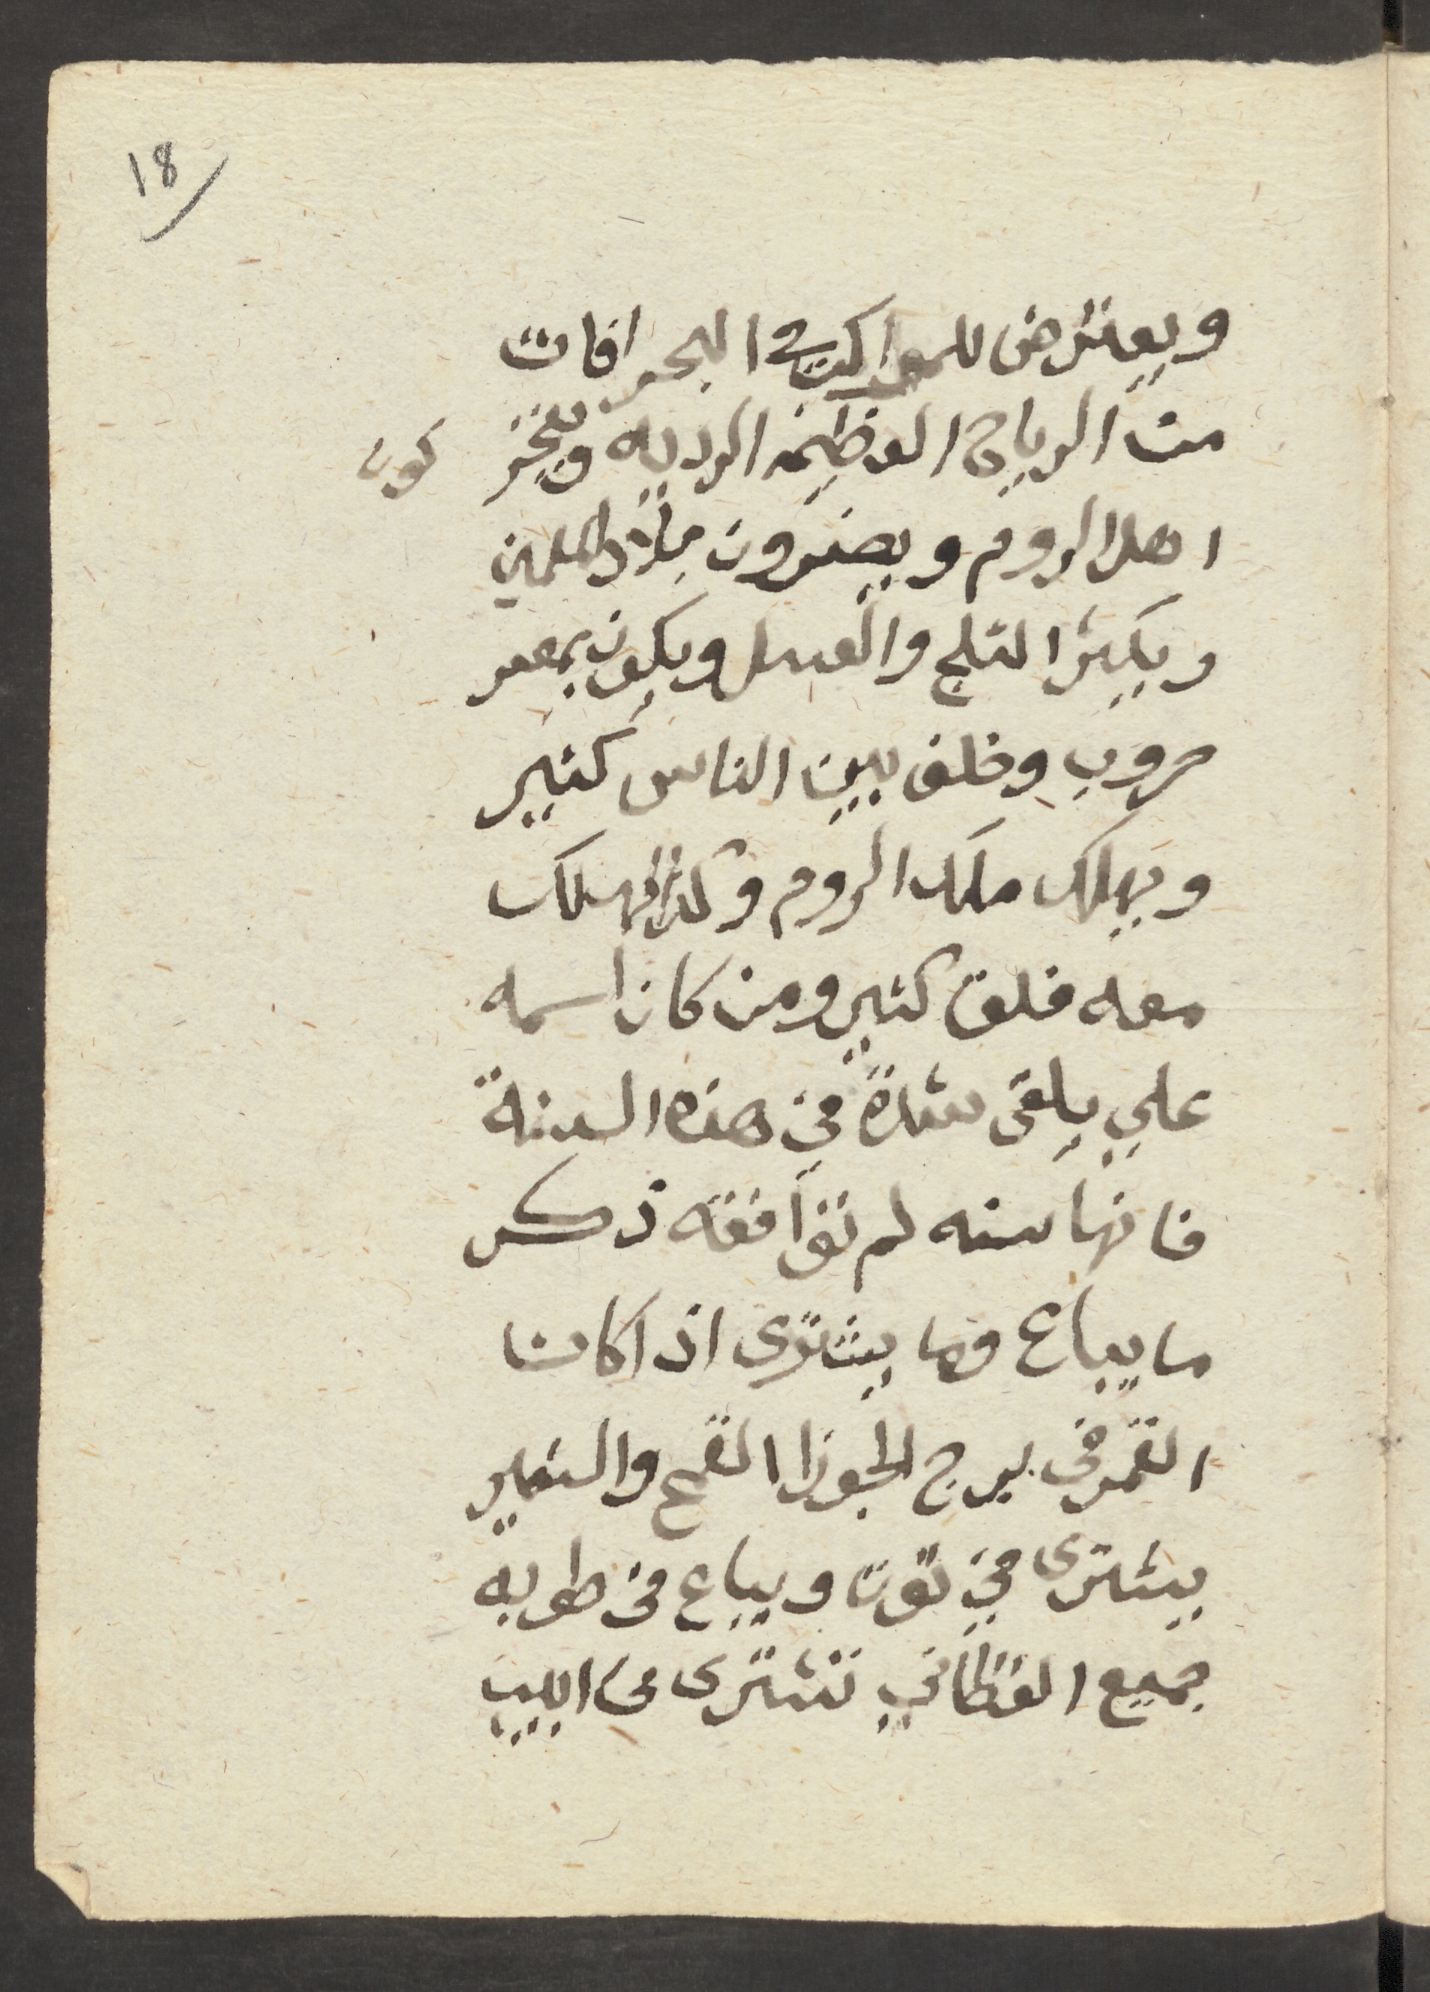 18
ويعترض للمراكب في البحر افات
من الرياح العظيمه الرديه ويتحركون
اهل الروم ويضرون بلاد المسلمين
ويكثر الثلج والعسل ويكون بمصر
حروب وخلف بين الناس كثير
ويهلك ملك الروم وكذا يهلك
معه خلق كثير ومن كان اسمه
علي يلقى شدة في هذه السنة
فانها سنه لم توافقه ذكر
ما يباع وما يشترى اذا كان
القمر في برج الجوزا القمح والشعير
يشترى في توت ويباع في طوبه
جميع القطاني تشترى في ابيب